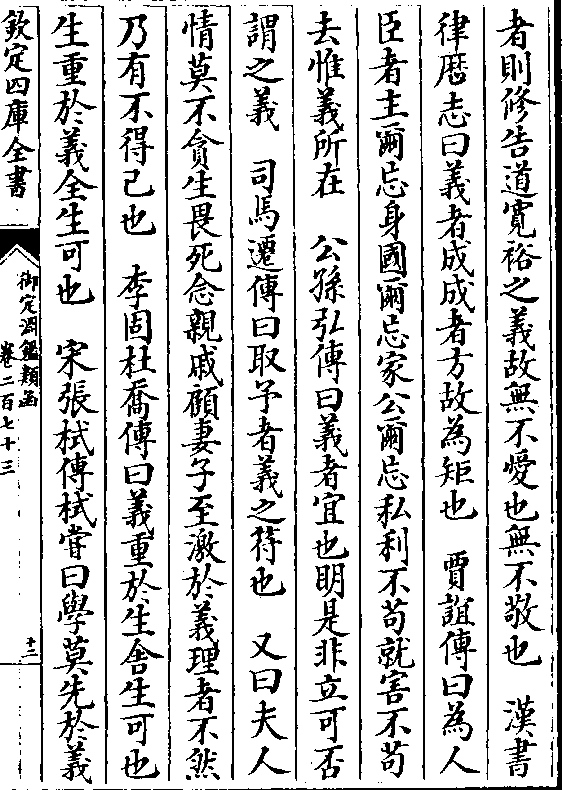 者則修告道寛裕之義故無不愛也無不敬也　漢書
律厯志曰義者成成者方故為矩也　賈誼傳曰為人
臣者主爾忘身國爾忘家公爾忘私利不苟就害不苟
去惟義所在　公孫弘傳曰義者宜也明是非立可否
謂之義　司馬遷傳曰取予者義之符也　又曰夫人
情莫不貪生畏死念親戚顧妻子至激於義理者不然
乃有不得已也　李固杜喬傳曰義重於生舍生可也
生重於義全生可也　宋張栻傳栻嘗曰學莫先於義
欽定四庫全書
御定淵鑑類函
卷二百七十三
十二